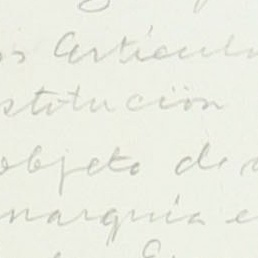 os Articulo
stitución
objeto de
narquía e